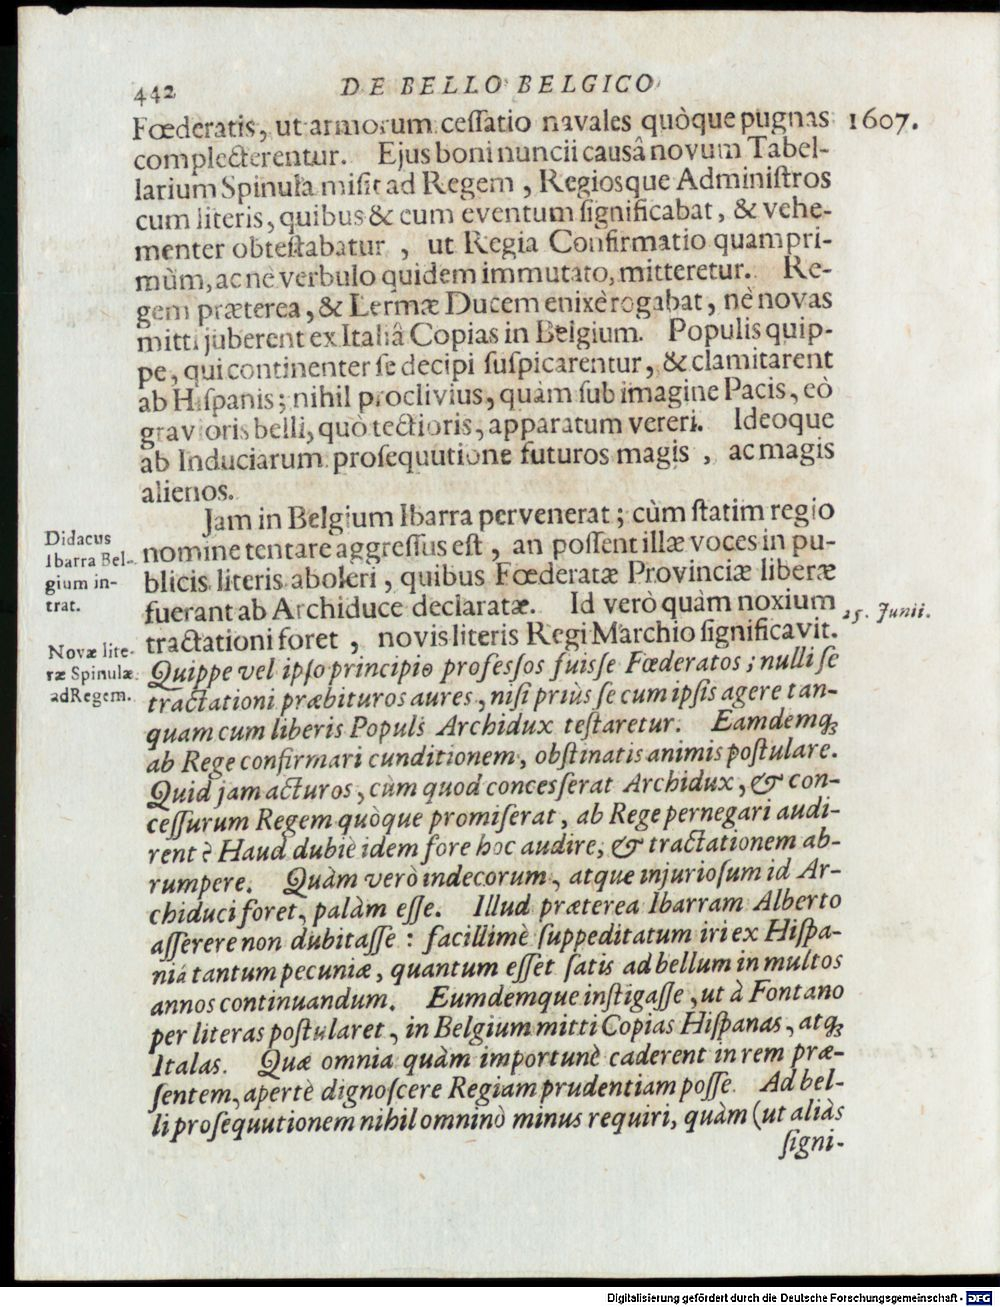 442 DE BELLO BELGICO
Fœderatis, ut armorum cessatio navales quòque pugnas 1607.
complecterentur. Ejus boni nuncii causâ novum Tabel-
larium Spinula misit ad Regem, Regiosque Administros
cum literis, quibus & eum eventum significabat, & vehe-
menter obtestabatur, ut Regia Confirmatio quampri-
mùm, ac ne verbulo quidem immutato, mitteretur. Re-
gem præterea, & Lermæ Ducem enixè rogabat, nè novas
mitti juberent ex Italiâ Copias in Belgium. Populis quip-
pe, qui continenter se decipi suspicarentur, & clamitarent
ab Hispanis; nihil proclivius, quàm sub imagine Pacis, eò
gravioris belli, quò tectioris, apparatum vereri. Ideoque
ab Induciarum prosequutione futuros magis, ac magis
alienos.
Jam in Belgium Ibarra pervenerat; cùm statim regio
Didacus
Ibarra Bel-
gium in-
trat.
nomine tentare aggressus est, an possent illæ voces in pu-
blicis literis aboleri, quibus Fœderatæ Provinciæ liberæ
fuerant ab Archiduce declaratæ. Id verò quàm noxium 25. Junii.
tractationi foret, novis literis Regi Marchio significavit.
Novæ lite-
ræ Spinulæ
ad Regem.
Quippe vel ipso principio professos fuisse Fœderatos; nulli se
tractationi præbituros aures, nisi priùs se cum ipsis agere tan-
quam cum liberis Populis Archidux testaretur. Eamdemq;
ab Rege confirmari cunditionem, obstinatis animis postulare.
Quid jam acturos, cùm quod concesserat Archidux, & con-
cessurum Regem quòque promiserat, ab Rege pernegari audi-
rent? Haud dubiè idem fore hoc audire, & tractationem ab-
rumpere. Quàm verò indecorum, atque injuriosum id Ar-
chiduci foret, palàm esse. Illud præterea Ibarram Alberto
asserere non dubitasse: facillimè suppeditatum iri ex Hispa-
niâ tantum pecuniæ, quantum esset satis ad bellum in multos
annos continuandum. Eumdemque instigasse, ut à Fontano
per literas postularet, in Belgium mitti Copias Hispanas, atq;
Italas. Quæ omnia quàm importunè caderent in rem præ-
sentem, apertè dignoscere Regiam prudentiam posse. Ad bel-
li prosequutionem nihil omninò minus requiri, quàm (ut aliàs
signi-
Digitalisierung gefördert durch die Deutsche Forschungsgemeinschaft - DFG